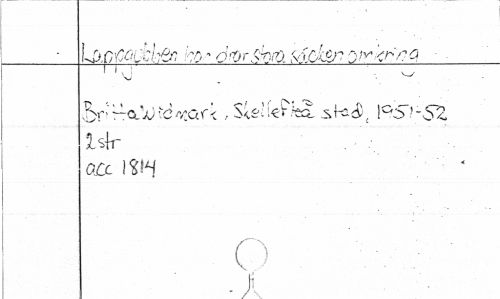 Lappgubben han drar stora säcken omkring
Britta Widmark, Skellefteå stad, 1951-52
2 str
acc 1814